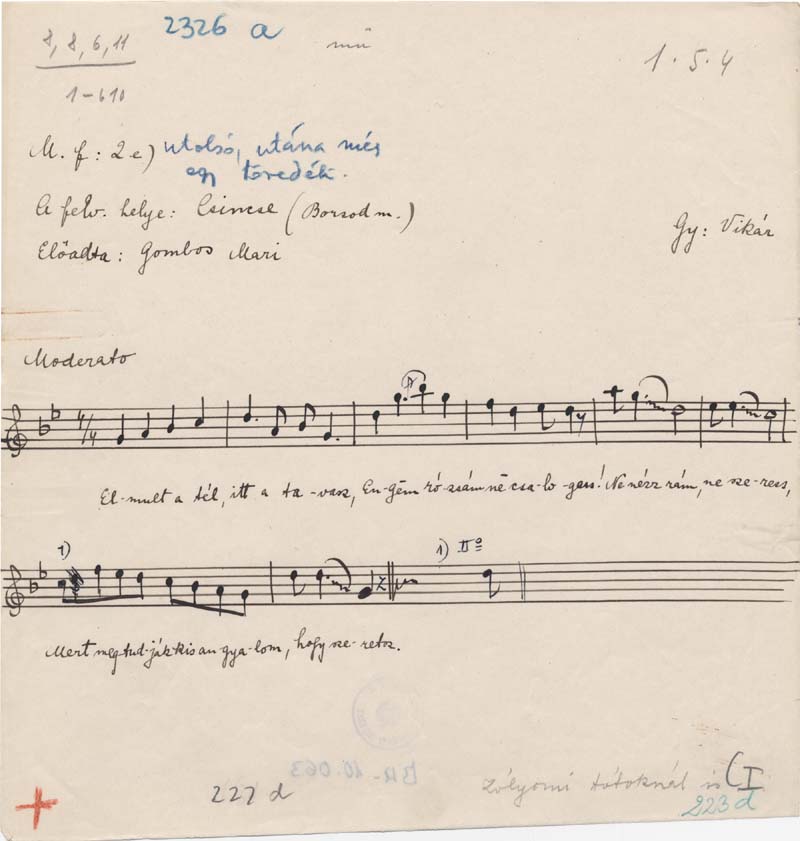 8, 8, 6, 11
2326 a
mű
1 . 5 . 4
1-b10
M. f : 2 e) utolsó, utána még
egy töredék.
A felv. helye : Csincse (Borsod m.)
Előadta : Gombos Mari
Gy : Vikár
Moderato
4/4
El-mult a tél, itt a ta-vasz, En-gëm ró-zsám në csa-lo-gass! Ne nézz rám, ne sze-ress,
1)
1) IIº
Mert megtud-ják kis an-gya-lom, hogy sze-retsz.
BA-10.063
227 d
zólyomi tótoknál is CI
223 d